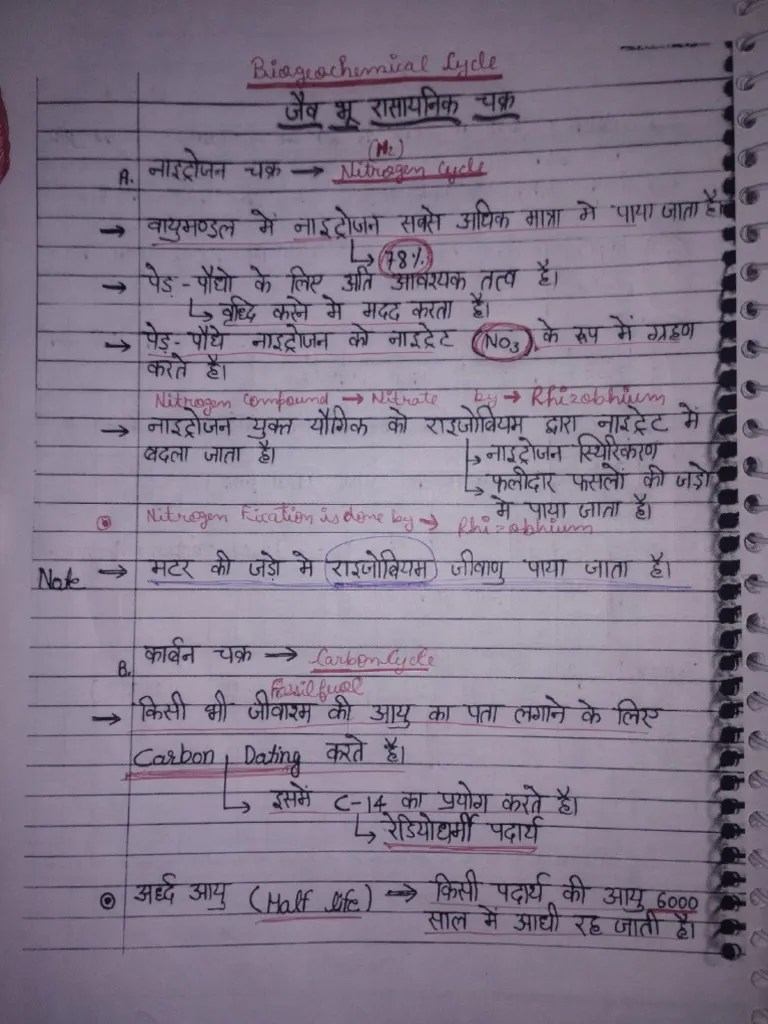 Biogeochemical Cycle
जैव भू रासायनिक चक्र
(N₂)
A. नाइट्रोजन चक्र → Nitrogen Cycle
→ वायुमण्डल में नाइट्रोजन सबसे अधिक मात्रा मे पाया जाता है।
↳ 78%
→ पेड़-पौधो के लिए अति आवश्यक तत्व है।
↳ वृध्दि करने मे मदद करता है।
→ पेड़-पौधे नाइट्रोजन को नाइट्रेट (NO₃) के रूप में ग्रहण
करते है।
Nitrogen Compound → Nitrate by → Rhizobhium
→ नाइट्रोजन युक्त यौगिक को राइजोवियम द्वारा नाइट्रेट में
बदला जाता है।
↳ नाइट्रोजन स्थिरिकरण
↳ फलीदार फसलों की जड़ो
मे पाया जाता है।
Nitrogen Fixation is done by → Rhizobhium
Note → मटर की जड़ो मे राइजोवियम जीवाणु पाया जाता है।
B. कार्बन चक्र → Carbon Cycle
Fossil fuel
→ किसी भी जीवाश्म की आयु का पता लगाने के लिए
Carbon Dating करते है।
↳ इसमें C-14 का प्रयोग करते है।
↳ रेडियोधर्मी पदार्थ
अर्ध्द आयु (Half life) → किसी पदार्थ की आयु 6000
साल में आधी रह जाती है।